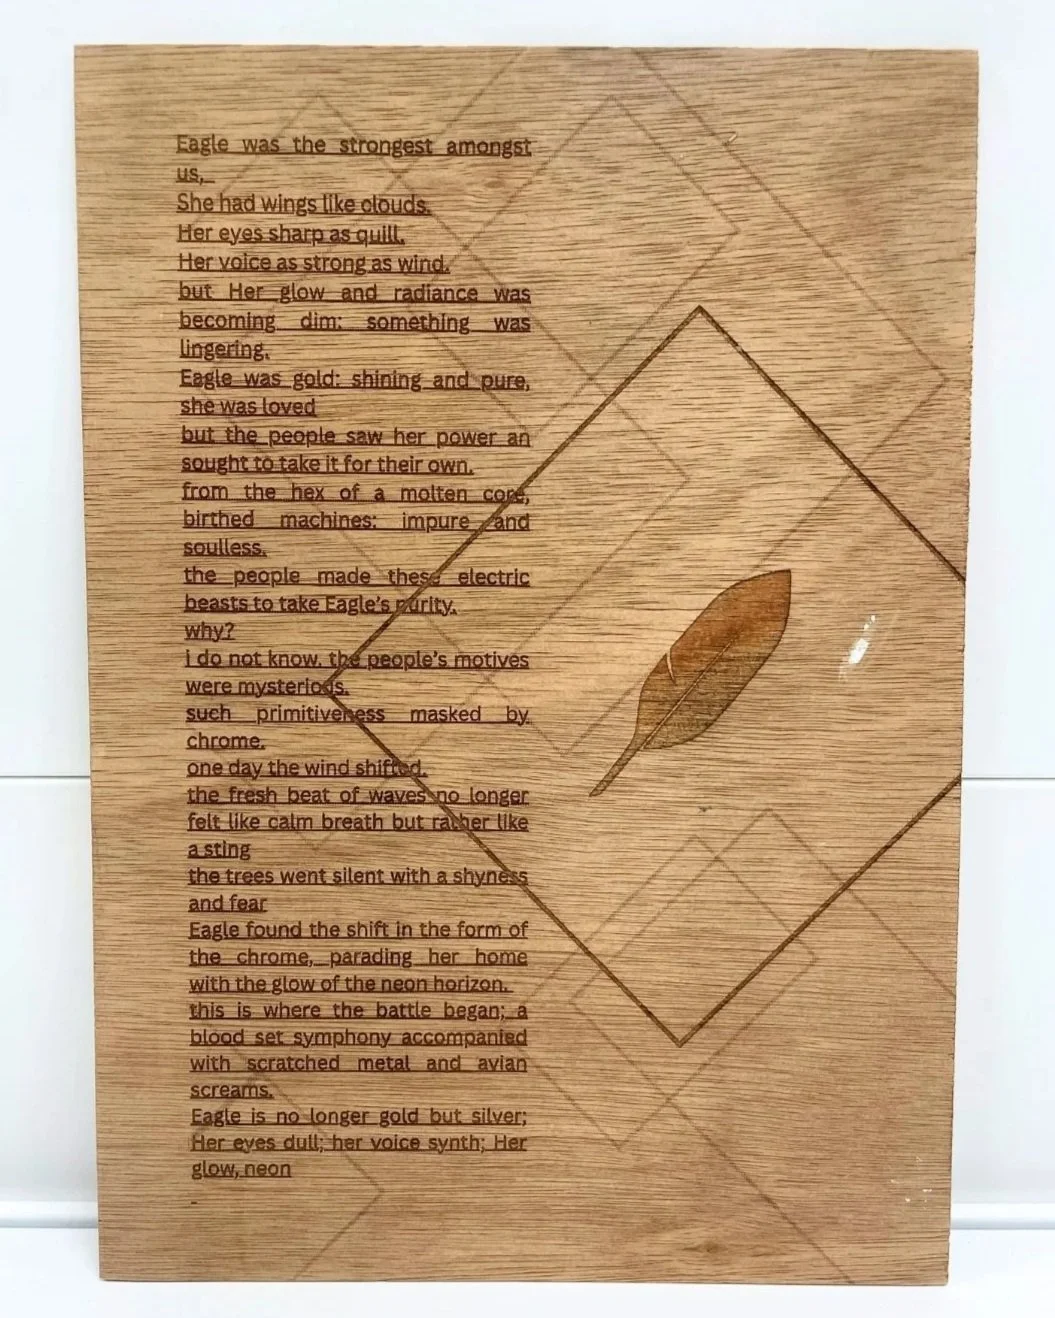 Eagle was the strongest amongst
us,
She had wings like clouds.
Her eyes sharp as quill.
Her voice as strong as wind.
but Her glow and radiance was
becoming dim: something was
lingering.
Eagle was gold: shining and pure,
she was loved
but the people saw her power an
sought to take it for their own.
from the hex of a molten core,
birthed machines: impure and
soulless.
the people made these electric
beasts to take Eagle's purity.
why?
i do not know. the people's motives
were mysterios.
such primitiveness masked by
chrome.
one day the wind shifted.
the fresh beat of waves no longer
felt like calm breath but rather like
a sting
the trees went silent with a shyness
and fear
Eagle found the shift in the form of
the chrome, parading her home
with the glow of the neon horizon.
this is where the battle began; a
blood set symphony accompanied
with scratched metal and avian
screams.
Eagle is no longer gold but silver;
Her eyes dull; her voice synth; Her
glow, neon
-